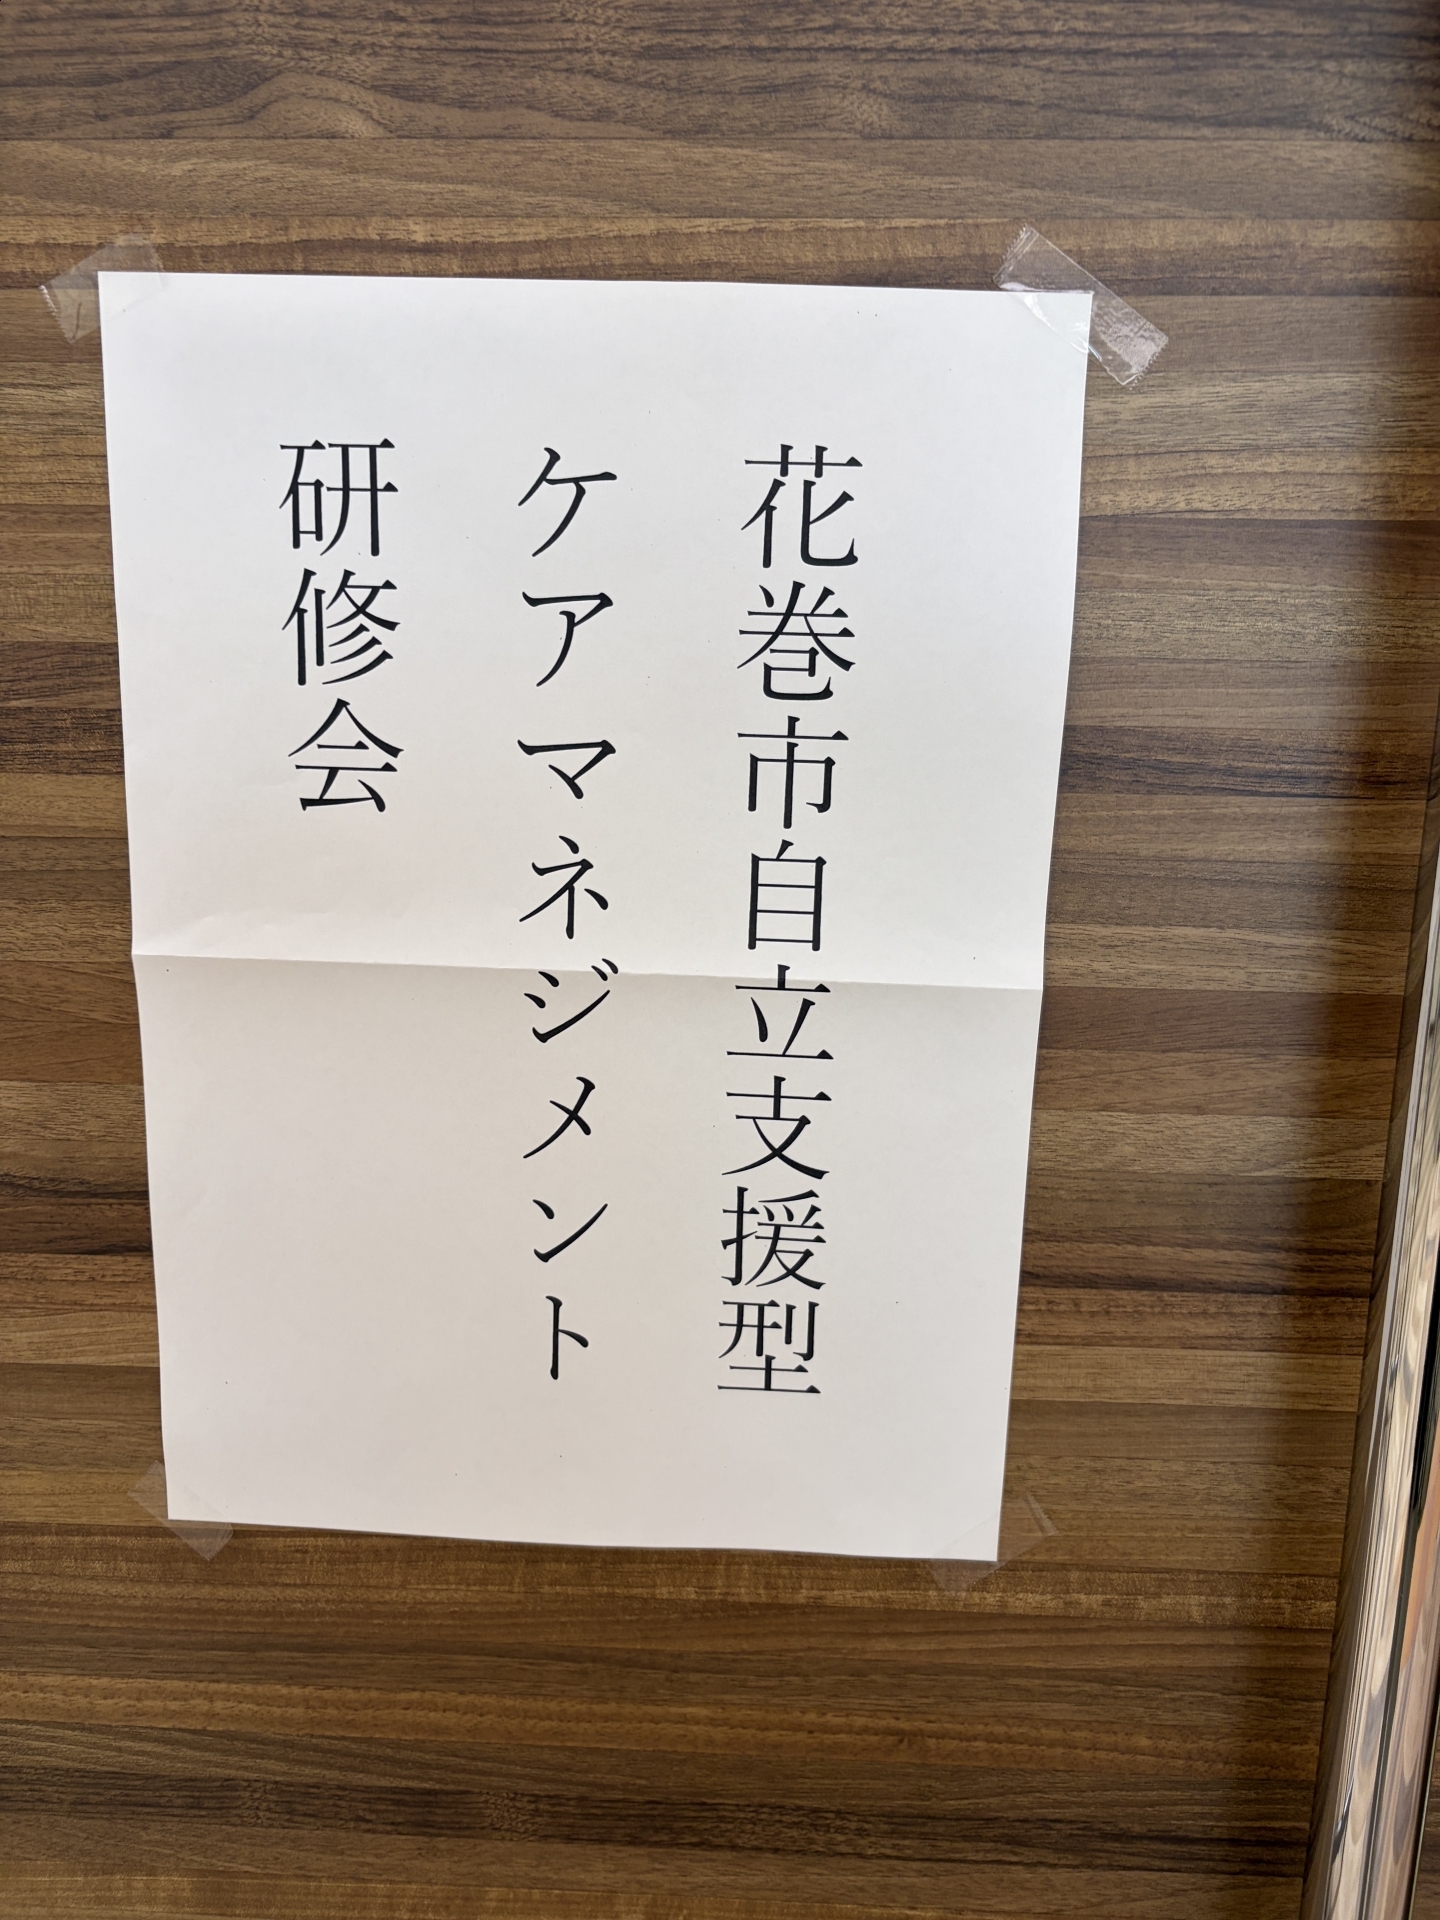 花巻市自立支援型
ケアマネジメント
研修会